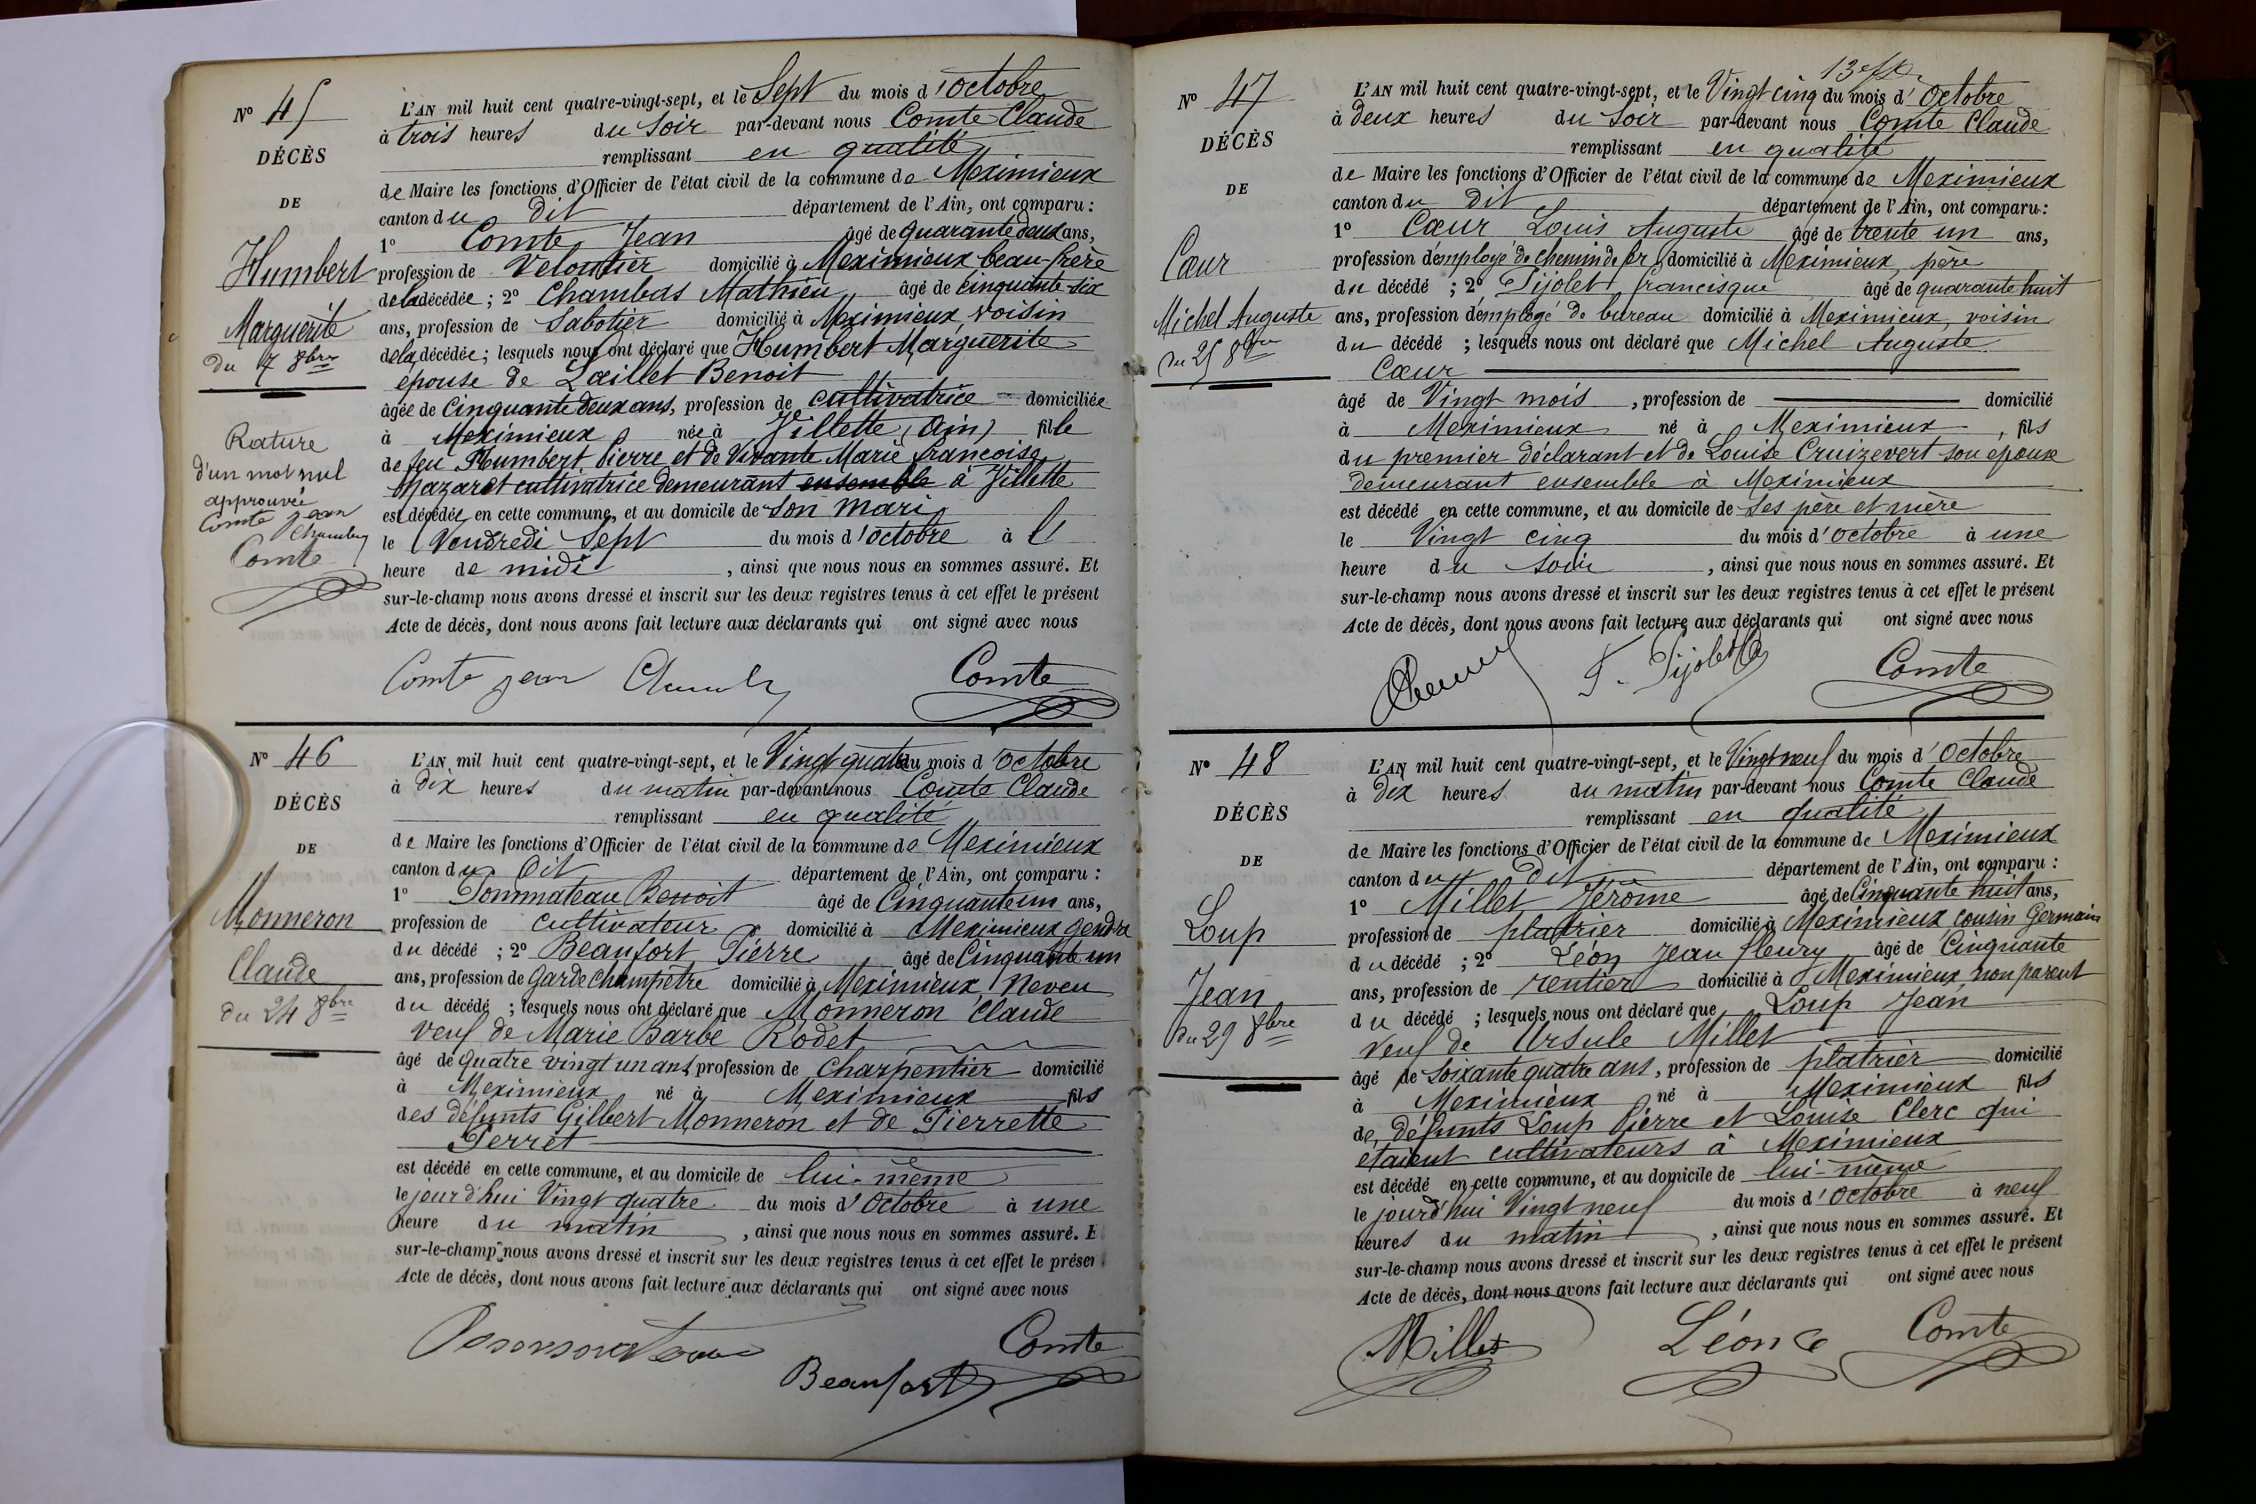 N° 45
DÉCÈS
DE
Humbert
Marguerite
du 7 8bre
Rature
d'un mot nul
approuvée
Comte Jean
Chambas
Comte
L'AN mil huit cent quatre-vingt-sept, et le Sept du mois d'octobre
à trois heures du Soir par-devant nous Comte Claude
remplissant en qualité
de Maire les fonctions d'Officier de l'état civil de la commune de Meximieux
canton du Dit département de l'Ain, ont comparu :
1° Comte Jean âgé de quarante deux ans,
profession de Veloutier domicilié à Meximieux beau-frère
de la décédée ; 2° Chambas Mathieu âgé de cinquante-six
ans, profession de Sabotier domicilié à Meximieux, voisin
de la décédée ; lesquels nous ont déclaré que Humbert Marguerite
épouse de Læillet Benoit
âgée de Cinquante deux ans, profession de cultivatrice domiciliée
à Meximieux née à Villette (Ain) fille
de feu Humbert Pierre et de Vivante Marie françoise
Mazaret cultivatrice demeurant ensemble à Villette
est décédée en cette commune, et au domicile de Son Mari
le Vendredi Sept du mois d'octobre à l'
heure de midi , ainsi que nous nous en sommes assuré. Et
sur-le-champ nous avons dressé et inscrit sur les deux registres tenus à cet effet le présent
Acte de décès, dont nous avons fait lecture aux déclarants qui ont signé avec nous
Comte Jean Comte
N° 46
DÉCÈS
DE
Monneron
Claude
du 24 8bre
L'AN mil huit cent quatre-vingt-sept, et le Vingt quatre du mois d'octobre
à Dix heures du matin par-devant nous Comte Claude
remplissant en qualité
de Maire les fonctions d'Officier de l'état civil de la commune de Meximieux
canton du Dit département de l'Ain, ont comparu :
1° Pommateau Benoit âgé de Cinquante un ans,
profession de cultivateur domicilié à Meximieux gendre
du décédé ; 2° Beaufort Pierre âgé de Cinquante un
ans, profession de Garde champêtre domicilié à Meximieux Neveu
du décédé ; lesquels nous ont déclaré que Monneron Claude
veuf de Marie Barbe Rodet
âgé de quatre vingt un ans profession de Charpentier domicilié
à Meximieux né à Meximieux fils
des défunts Gilbert Monneron et de Pierrette
Perret
est décédé en cette commune, et au domicile de lui-même
le jourd'hui Vingt quatre du mois d'Octobre à une
heure du matin , ainsi que nous nous en sommes assuré. E
sur-le-champ nous avons dressé et inscrit sur les deux registres tenus à cet effet le présen
Acte de décès, dont nous avons fait lecture aux déclarants qui ont signé avec nous
Comte
Beaufort
N° 47
DÉCÈS
DE
Cœur
Michel Auguste
du 25 8bre
L'AN mil huit cent quatre-vingt-sept, et le Vingt cinq du mois d'Octobre
à Deux heures du Soir par-devant nous Comte Claude
remplissant en qualité
de Maire les fonctions d'Officier de l'état civil de la commune de Meximieux
canton du Dit département de l'Ain, ont comparu :
1° Cœur Louis Auguste âgé de trente un ans,
profession d'employé de chemin de fer domicilié à Meximieux, père
du décédé ; 2° Pijolet francisque âgé de quarante huit
ans, profession d'employé de bureau domicilié à Meximieux, voisin
du décédé ; lesquels nous ont déclaré que Michel Auguste
Cœur
âgé de Vingt mois , profession de domicilié
à Meximieux né à Meximieux , fils
du premier déclarant et de Louise Cruizevert son épouse
demeurant ensemble à Meximieux
est décédé en cette commune, et au domicile de Ses père et mère
le Vingt cinq du mois d'octobre à une
heure du soir , ainsi que nous nous en sommes assuré. Et
sur-le-champ nous avons dressé et inscrit sur les deux registres tenus à cet effet le présent
Acte de décès, dont nous avons fait lecture aux déclarants qui ont signé avec nous
F. Pijolet Comte
N° 48
DÉCÈS
DE
Loup
Jean
du 29 8bre
L'AN mil huit cent quatre-vingt-sept, et le Vingt neuf du mois d'Octobre
à Dix heures du matin par-devant nous Comte Claude
remplissant en qualité
de Maire les fonctions d'Officier de l'état civil de la commune de Meximieux
canton du dit département de l'Ain, ont comparu :
1° Millet Jérôme âgé de Cinquante huit ans,
profession de platrier domicilié à Meximieux cousin Germain
du décédé ; 2° Léon Jean fleury âgé de Cinquante
ans, profession de rentier domicilié à Meximieux, non parent
du décédé ; lesquels nous ont déclaré que Loup Jean
veuf de Ursule Millet
âgé de Soixante quatre ans, profession de platrier domicilié
à Meximieux né à Meximieux fils
de défunts Loup Pierre et Louise Clerc qui
étaient cultivateurs à Meximieux
est décédé en cette commune, et au domicile de lui-même
le jourd'hui Vingt neuf du mois d'Octobre à neuf
heures du matin , ainsi que nous nous en sommes assuré. Et
sur-le-champ nous avons dressé et inscrit sur les deux registres tenus à cet effet le présent
Acte de décès, dont nous avons fait lecture aux déclarants qui ont signé avec nous
Millet Léon Comte